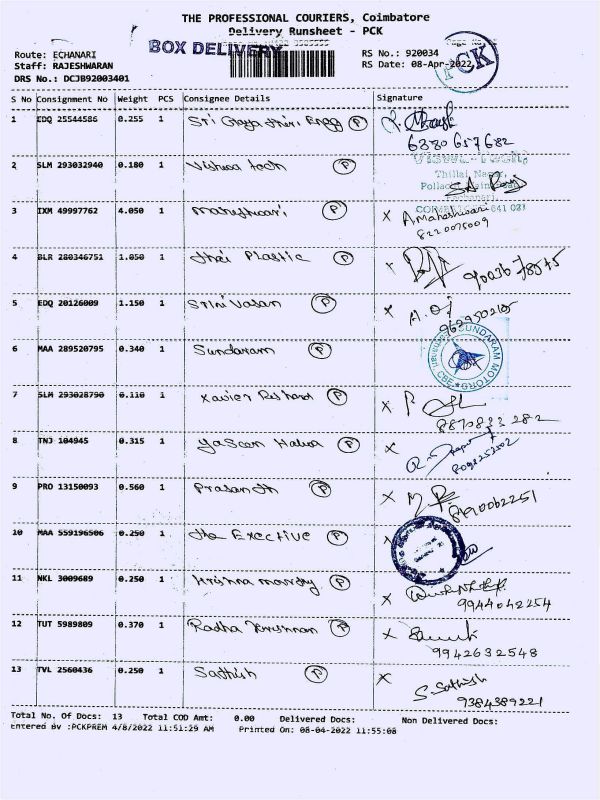 THE PROFESSIONAL COURIERS, Coimbatore
Delivery Runsheet - PCK
BOX DELIVERY
Route: ECHANARI
Staff: RAJESHWARAN
DRS No.: DCJB92003401
RS No.: 920034
RS Date: 08-Apr-2022
PCK
S No Consignment No Weight PCS Consignee Details Signature
1 EDQ 25544586 0.255 1 Sri P
6380657682
2 SLM 293032940 0.180 1 Vishwa tech P
Thillai Nagar,
3 IXM 49997762 4.050 1 Maheshwari P X A.Maheshwari
8220075009
4 BLR 280346751 1.050 1 Plastic P
90036 78575
5 EDQ 20126009 1.150 1 Srinivasan P X
9629502105
6 MAA 289520795 0.340 1 Sundaram P
SUNDARAM MOTORS CBE
7 SLM 293028790 0.110 1 Xavier P X
8870833 282
8 TNJ 104945 0.315 1 Yaseen P X
9 PRO 13150093 0.560 1 Prasanth P X
10 MAA 559196506 0.250 1 The Exective P
11 NKL 3009689 0.250 1 Krishna P X
9944042254
12 TUT 5989809 0.370 1 Radha Krishnan P X
9942632548
13 TVL 2560436 0.250 1 Sathish P X
S.Sathish
9384389221
Total No. Of Docs: 13 Total COD Amt: 0.00 Delivered Docs: Non Delivered Docs:
Entered By :PCKPREM 4/8/2022 11:51:29 AM Printed On: 08-04-2022 11:55:08